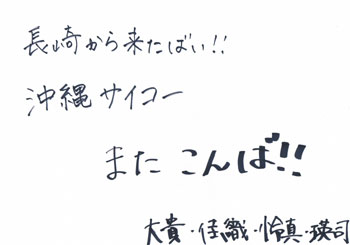 長崎から来たばい!!
沖縄サイコー
また こんば!!
大貴・佳織・怜真・瑛司